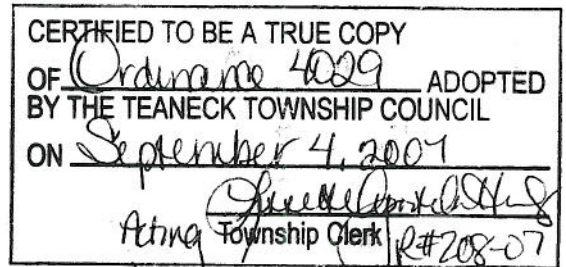 CERTIFIED TO BE A TRUE COPY
OF Ordinance 4029 ADOPTED
BY THE TEANECK TOWNSHIP COUNCIL
ON September 4, 2007
Acting Township Clerk R#208-07